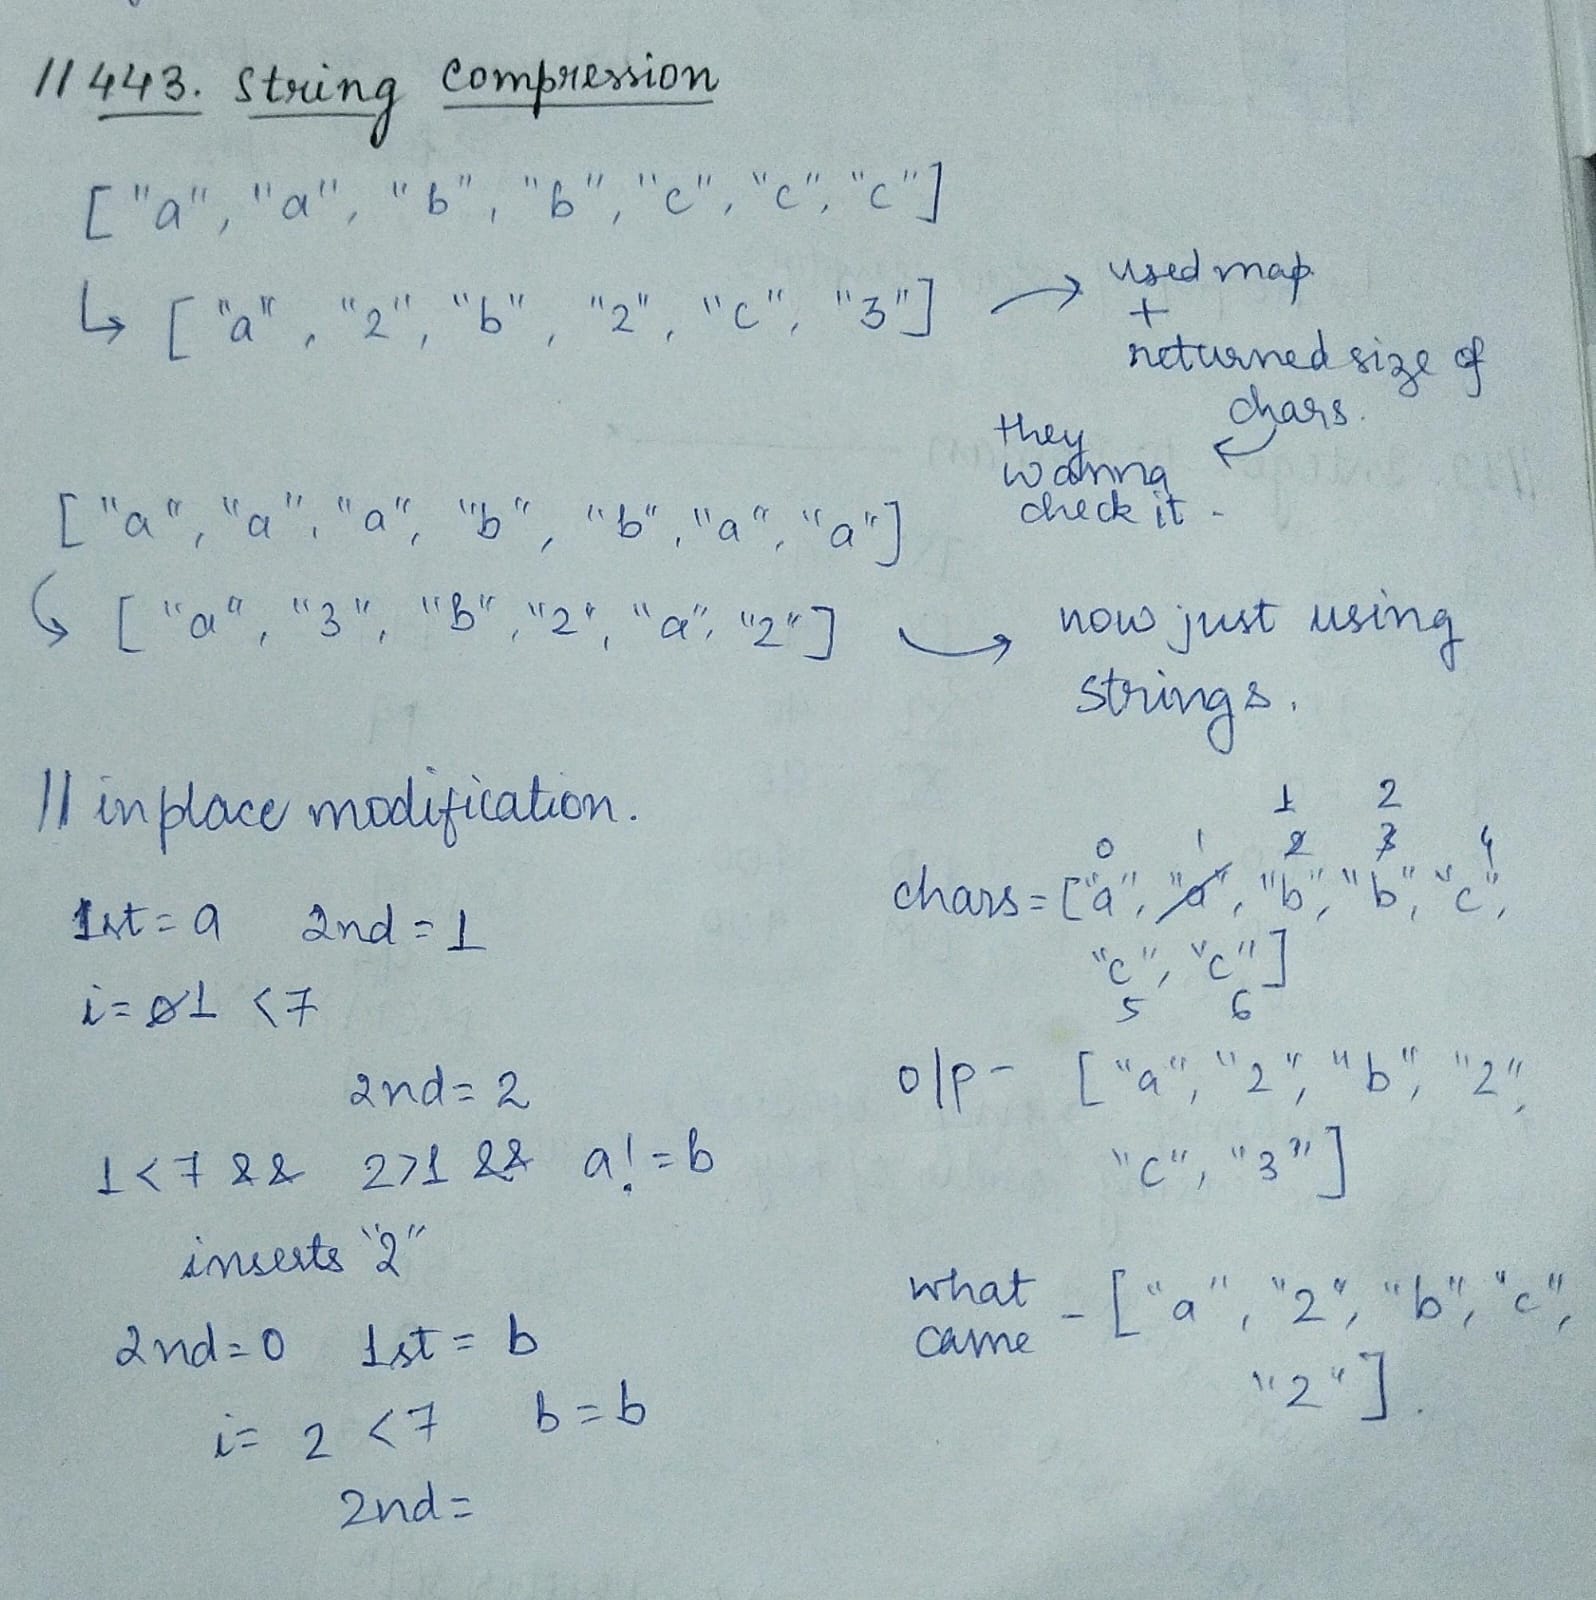 //443. String Compression
["a", "a", "b", "b", "c", "c", "c"]
↳ ["a", "2", "b", "2", "c", "3"] → used map
+
returned size of
chars.
they
wanna
check it -
["a", "a", "a", "b", "b", "a", "a"]
↳ ["a", "3", "b", "2", "a", "2"] → now just using
strings.
// inplace modification.
1st = a 2nd = 1
i = 0 1 < 7
2nd = 2
1 < 7 && 2 > 1 && a! = b
inserts "2"
2nd = 0 1st = b
i = 2 < 7 b = b
2nd =
1 2
0 1 2 3 4
chars = ["a", "a", "b", "b", "c",
"c", "c"]
5 6
o/p - ["a", "2", "b", "2",
"c", "3"]
what
came - ["a", "2", "b", "c",
"2"].